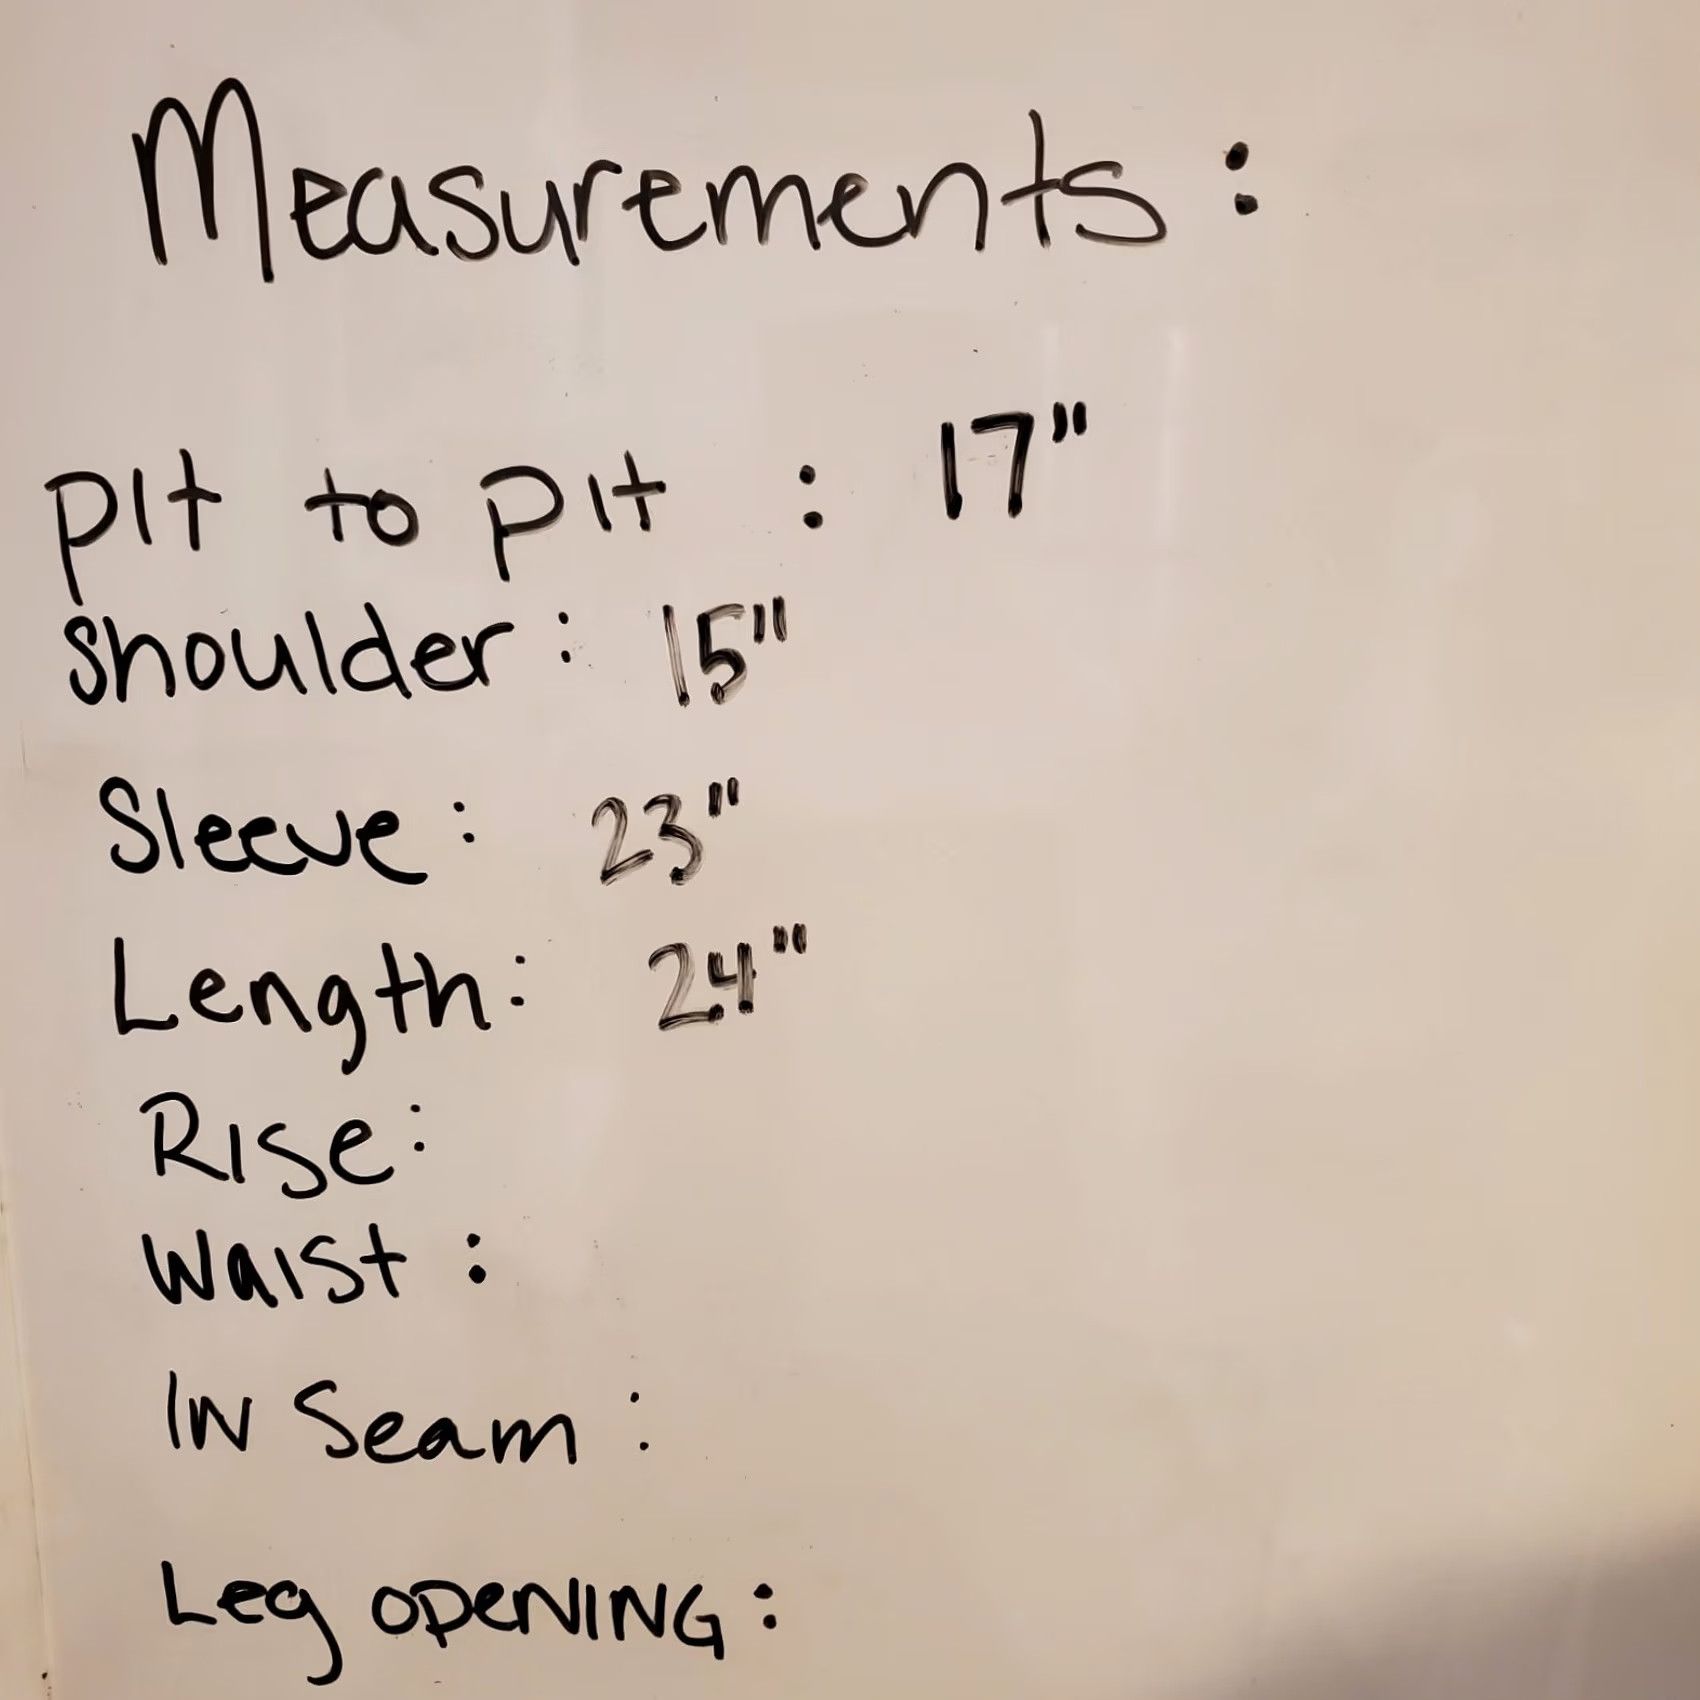 Measurements :
pit to pit : 17"
Shoulder : 15"
Sleeve : 23"
Length : 24"
Rise :
Waist :
IN Seam :
Leg OPeNING :